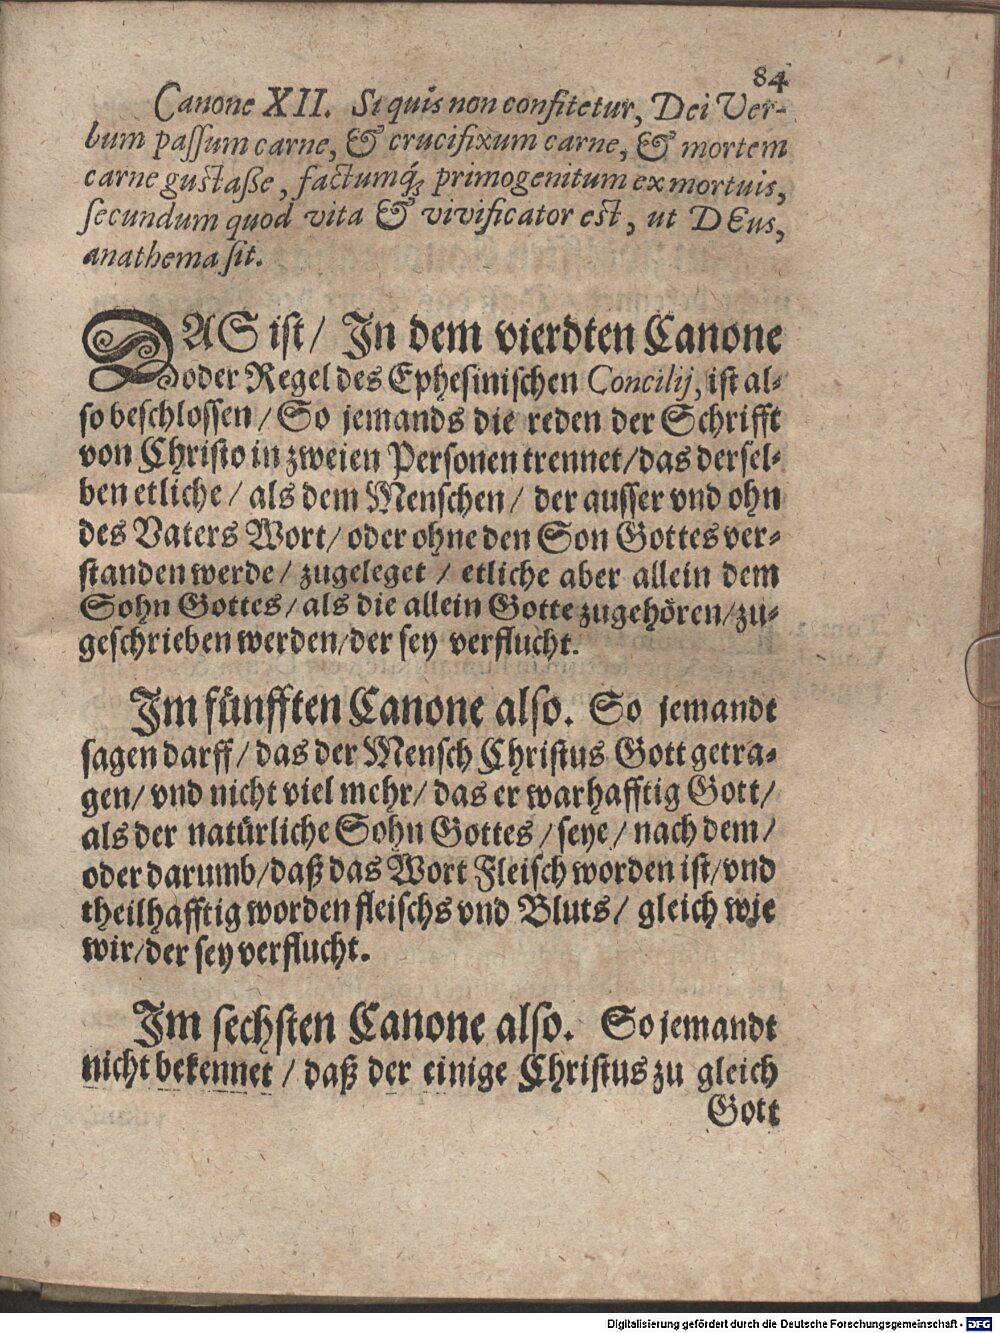 84
Canone XII. Si quis non confitetur, Dei Ver-
bum passum carne, & crucifixum carne, & mortem
carne gustaße, factumq́; primogenitum ex mortuis,
secundum quod vita & vivificator est, ut DEus,
anathema sit.
DAS ist/ In dem vierdten Canone
oder Regel des Ephesinischen Concilij, ist al-
so beschlossen/ So jemands die reden der Schrifft
von Christo in zweien Personen trennet/das dersel-
ben etliche/ als dem Menschen/ der ausser vnd ohn
des Vaters Wort/ oder ohne den Son Gottes ver-
standen werde/ zugeleget/ etliche aber allein dem
Sohn Gottes/als die allein Gotte zugehören/zu-
geschrieben werden/der sey verflucht.
Im fünfften Canone also. So jemandt
sagen darff/das der Mensch Christus Gott getra-
gen/ vnd nicht viel mehr/ das er warhafftig Gott/
als der natürliche Sohn Gottes/seye/ nach dem/
oder darumb/daß das Wort Fleisch worden ist/vnd
theilhafftig worden fleischs vnd Bluts/ gleich wie
wir/der sey verflucht.
Im sechsten Canone also. So jemandt
nicht bekennet/ daß der einige Christus zu gleich
Gott
Digitalisierung gefördert durch die Deutsche Forschungsgemeinschaft - DFG